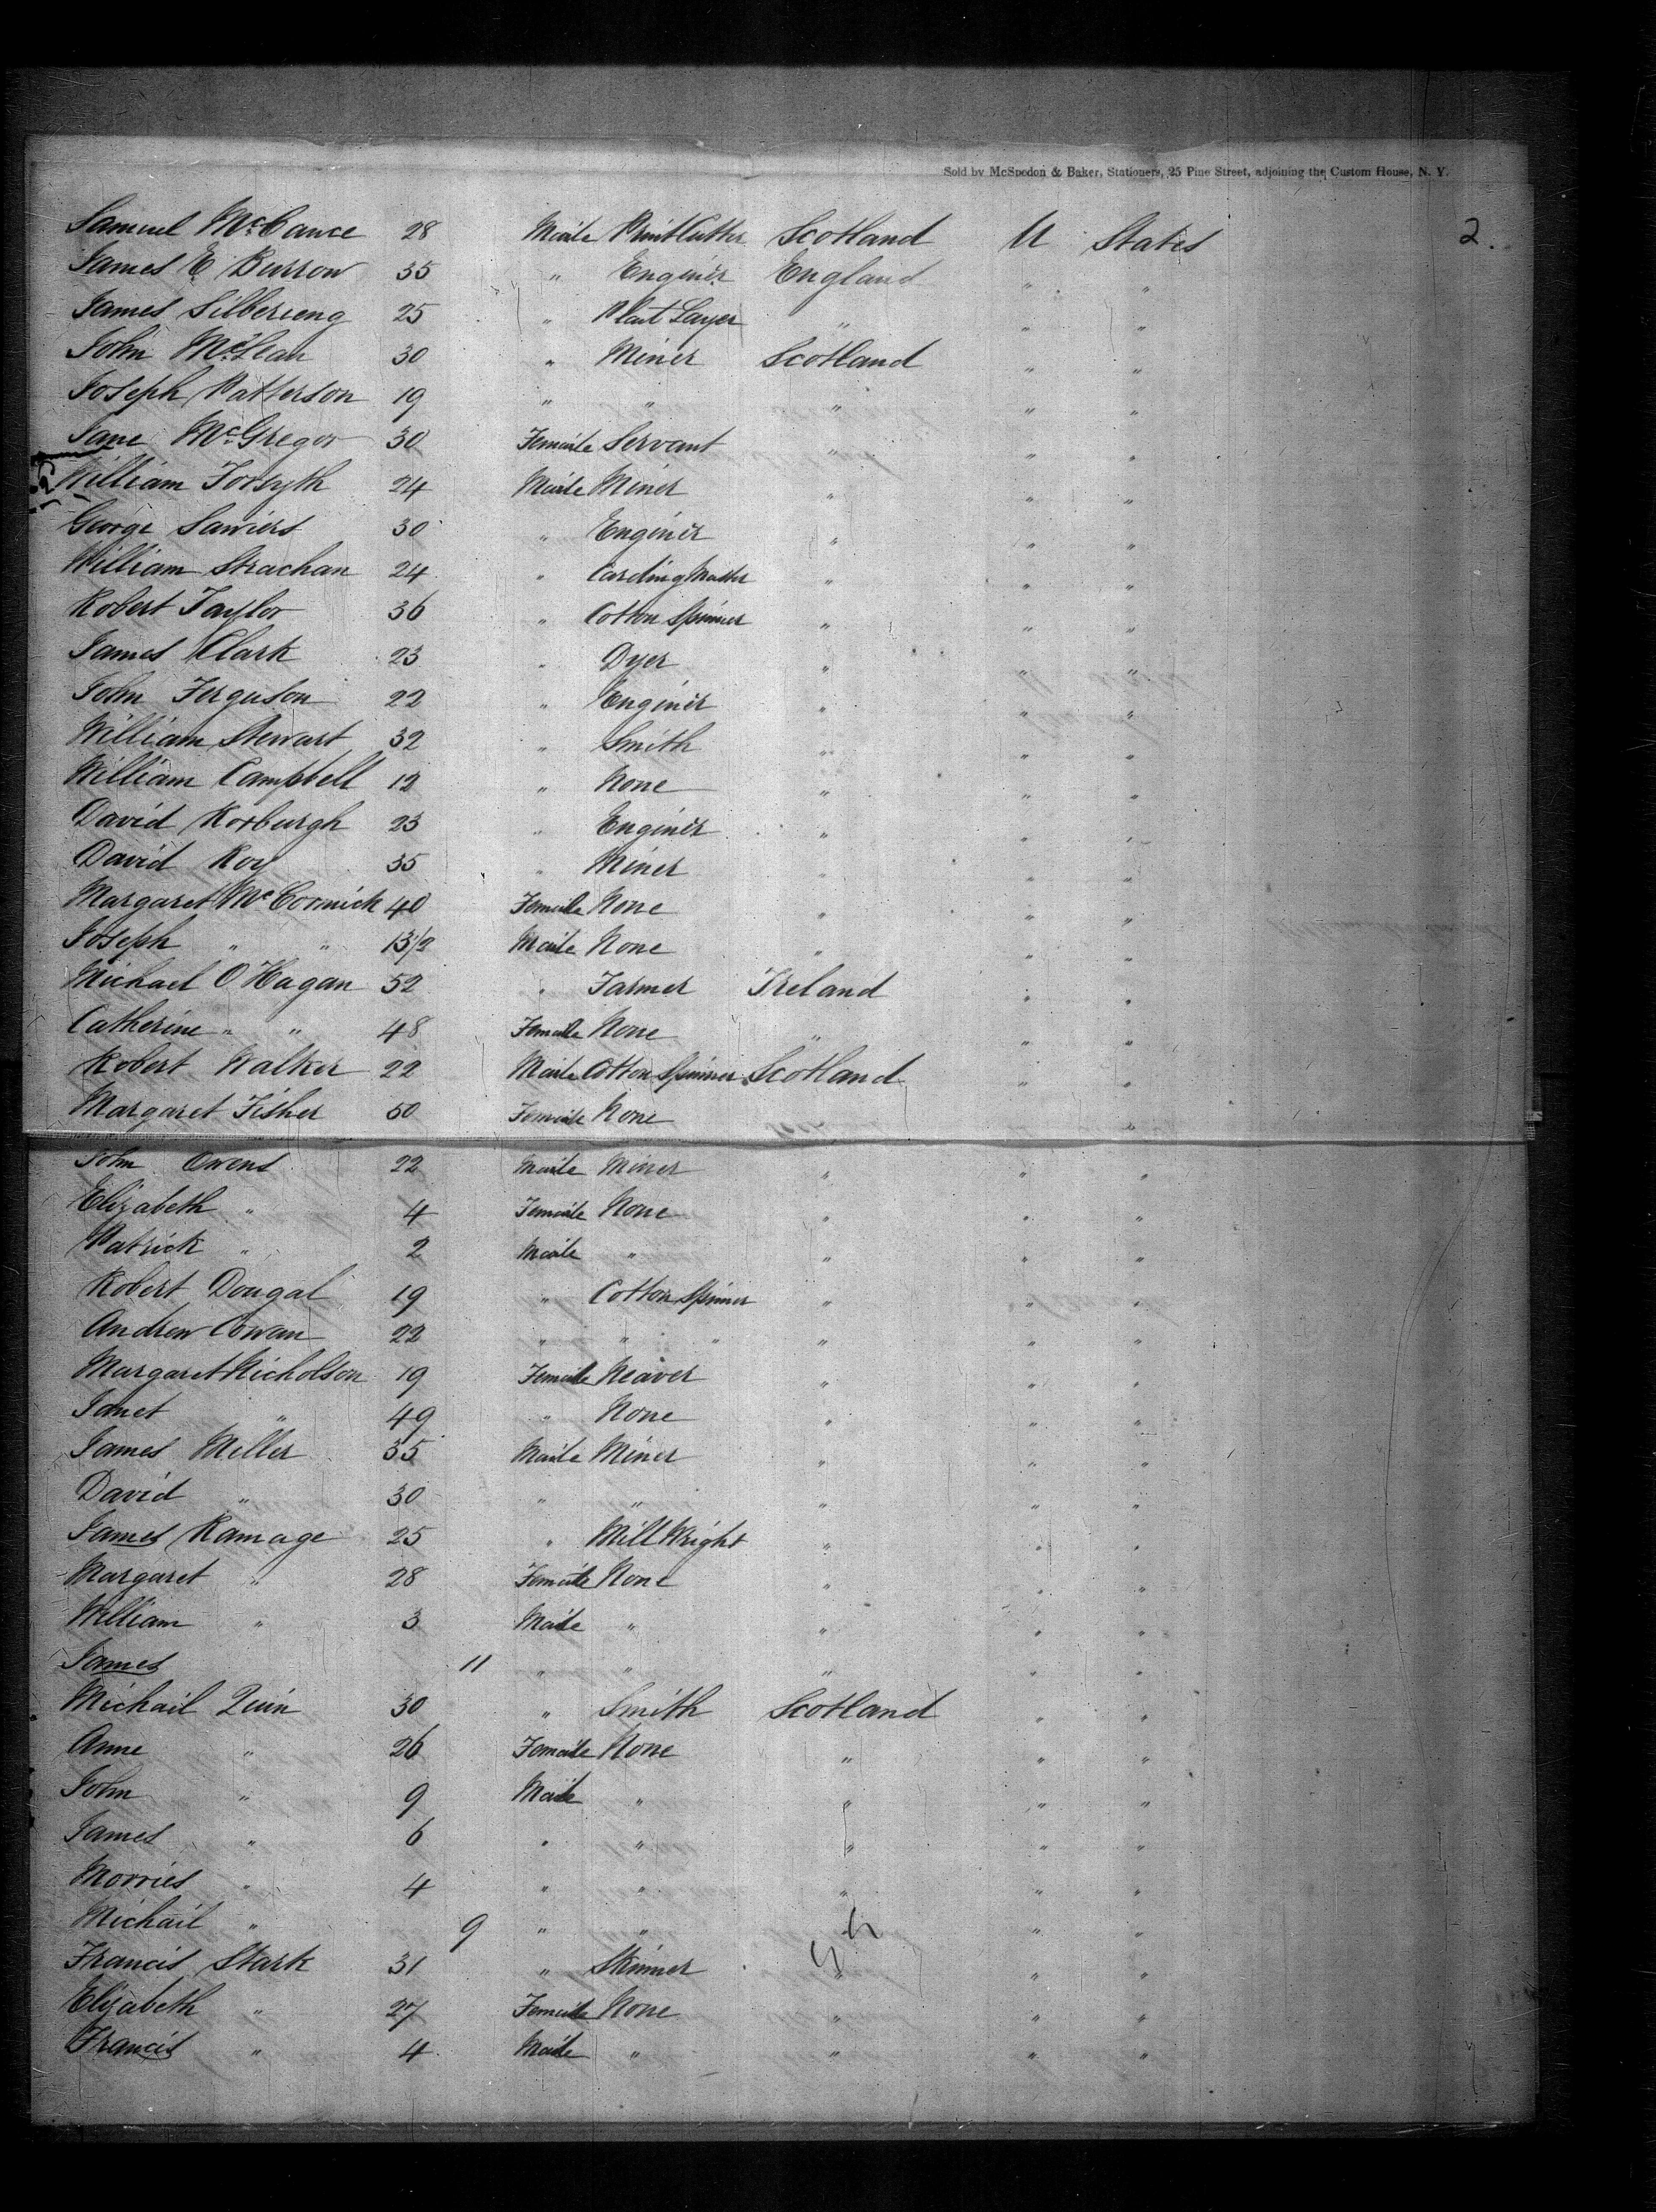 Sold by McSpedon & Baker, Stationers, 25 Pine Street, adjoining the Custom House, N. Y.
2.
Samuel McCance 28 Male Print Cutter Scotland U States
James E Burrow 35 " Enginer England " "
James Silbereng 25 " Plait Layer " " "
John McLean 30 " Miner Scotland " "
Joseph Patterson 19 " " " " "
Jane McGregor 30 Female Servant " " "
William Forsyth 24 Male Miner " " "
George Sawiers 30 " Enginer " " "
William Strachan 24 " Carding Master " " "
Robert Taylor 36 " Cotton Spinner " " "
James Clark 23 " Dyer " " "
John Ferguson 22 " Enginer " " "
William Stewart 32 " Smith " " "
William Campbell 12 " None " " "
David Roxburgh 23 " Enginer " " "
David Roy 35 " Miner " " "
Margaret McCormick 40 Female None " " "
Joseph " " 13/12 Male None " " "
Michael O'Hagan 52 " Farmer Ireland " "
Catherine " " 48 Female None " " "
Robert Walker 22 Male Cotton Spinner Scotland " "
Margaret Fisher 50 Female None
John Owens 22 Male Miner " " "
Elizabeth " 4 Female None " " "
Patrick " 2 Male " " " "
Robert Dougal 19 " Cotton Spinner " " "
Andrew Cowan 22 " " " " " "
Margaret Nicholson 19 Female Weaver " " "
Janet " 49 " None " " "
James Miller 35 Male Miner " " "
David " 30 " " " " "
James Ramage 25 " Mill Wright " " "
Margaret " 28 Female None " " "
William " 3 Male " " " "
James 11 " " " " "
Michail Quin 30 " Smith Scotland " "
Anne " 26 Female None " " "
John " 9 Male " " " "
James " 6 " " " " "
Morries " 4 " " " " "
Michail " 9 " " " "
Francis Stark 31 " Skinner " " "
Elizabeth " 27 Female None " " "
Francis " 4 Male " " " "